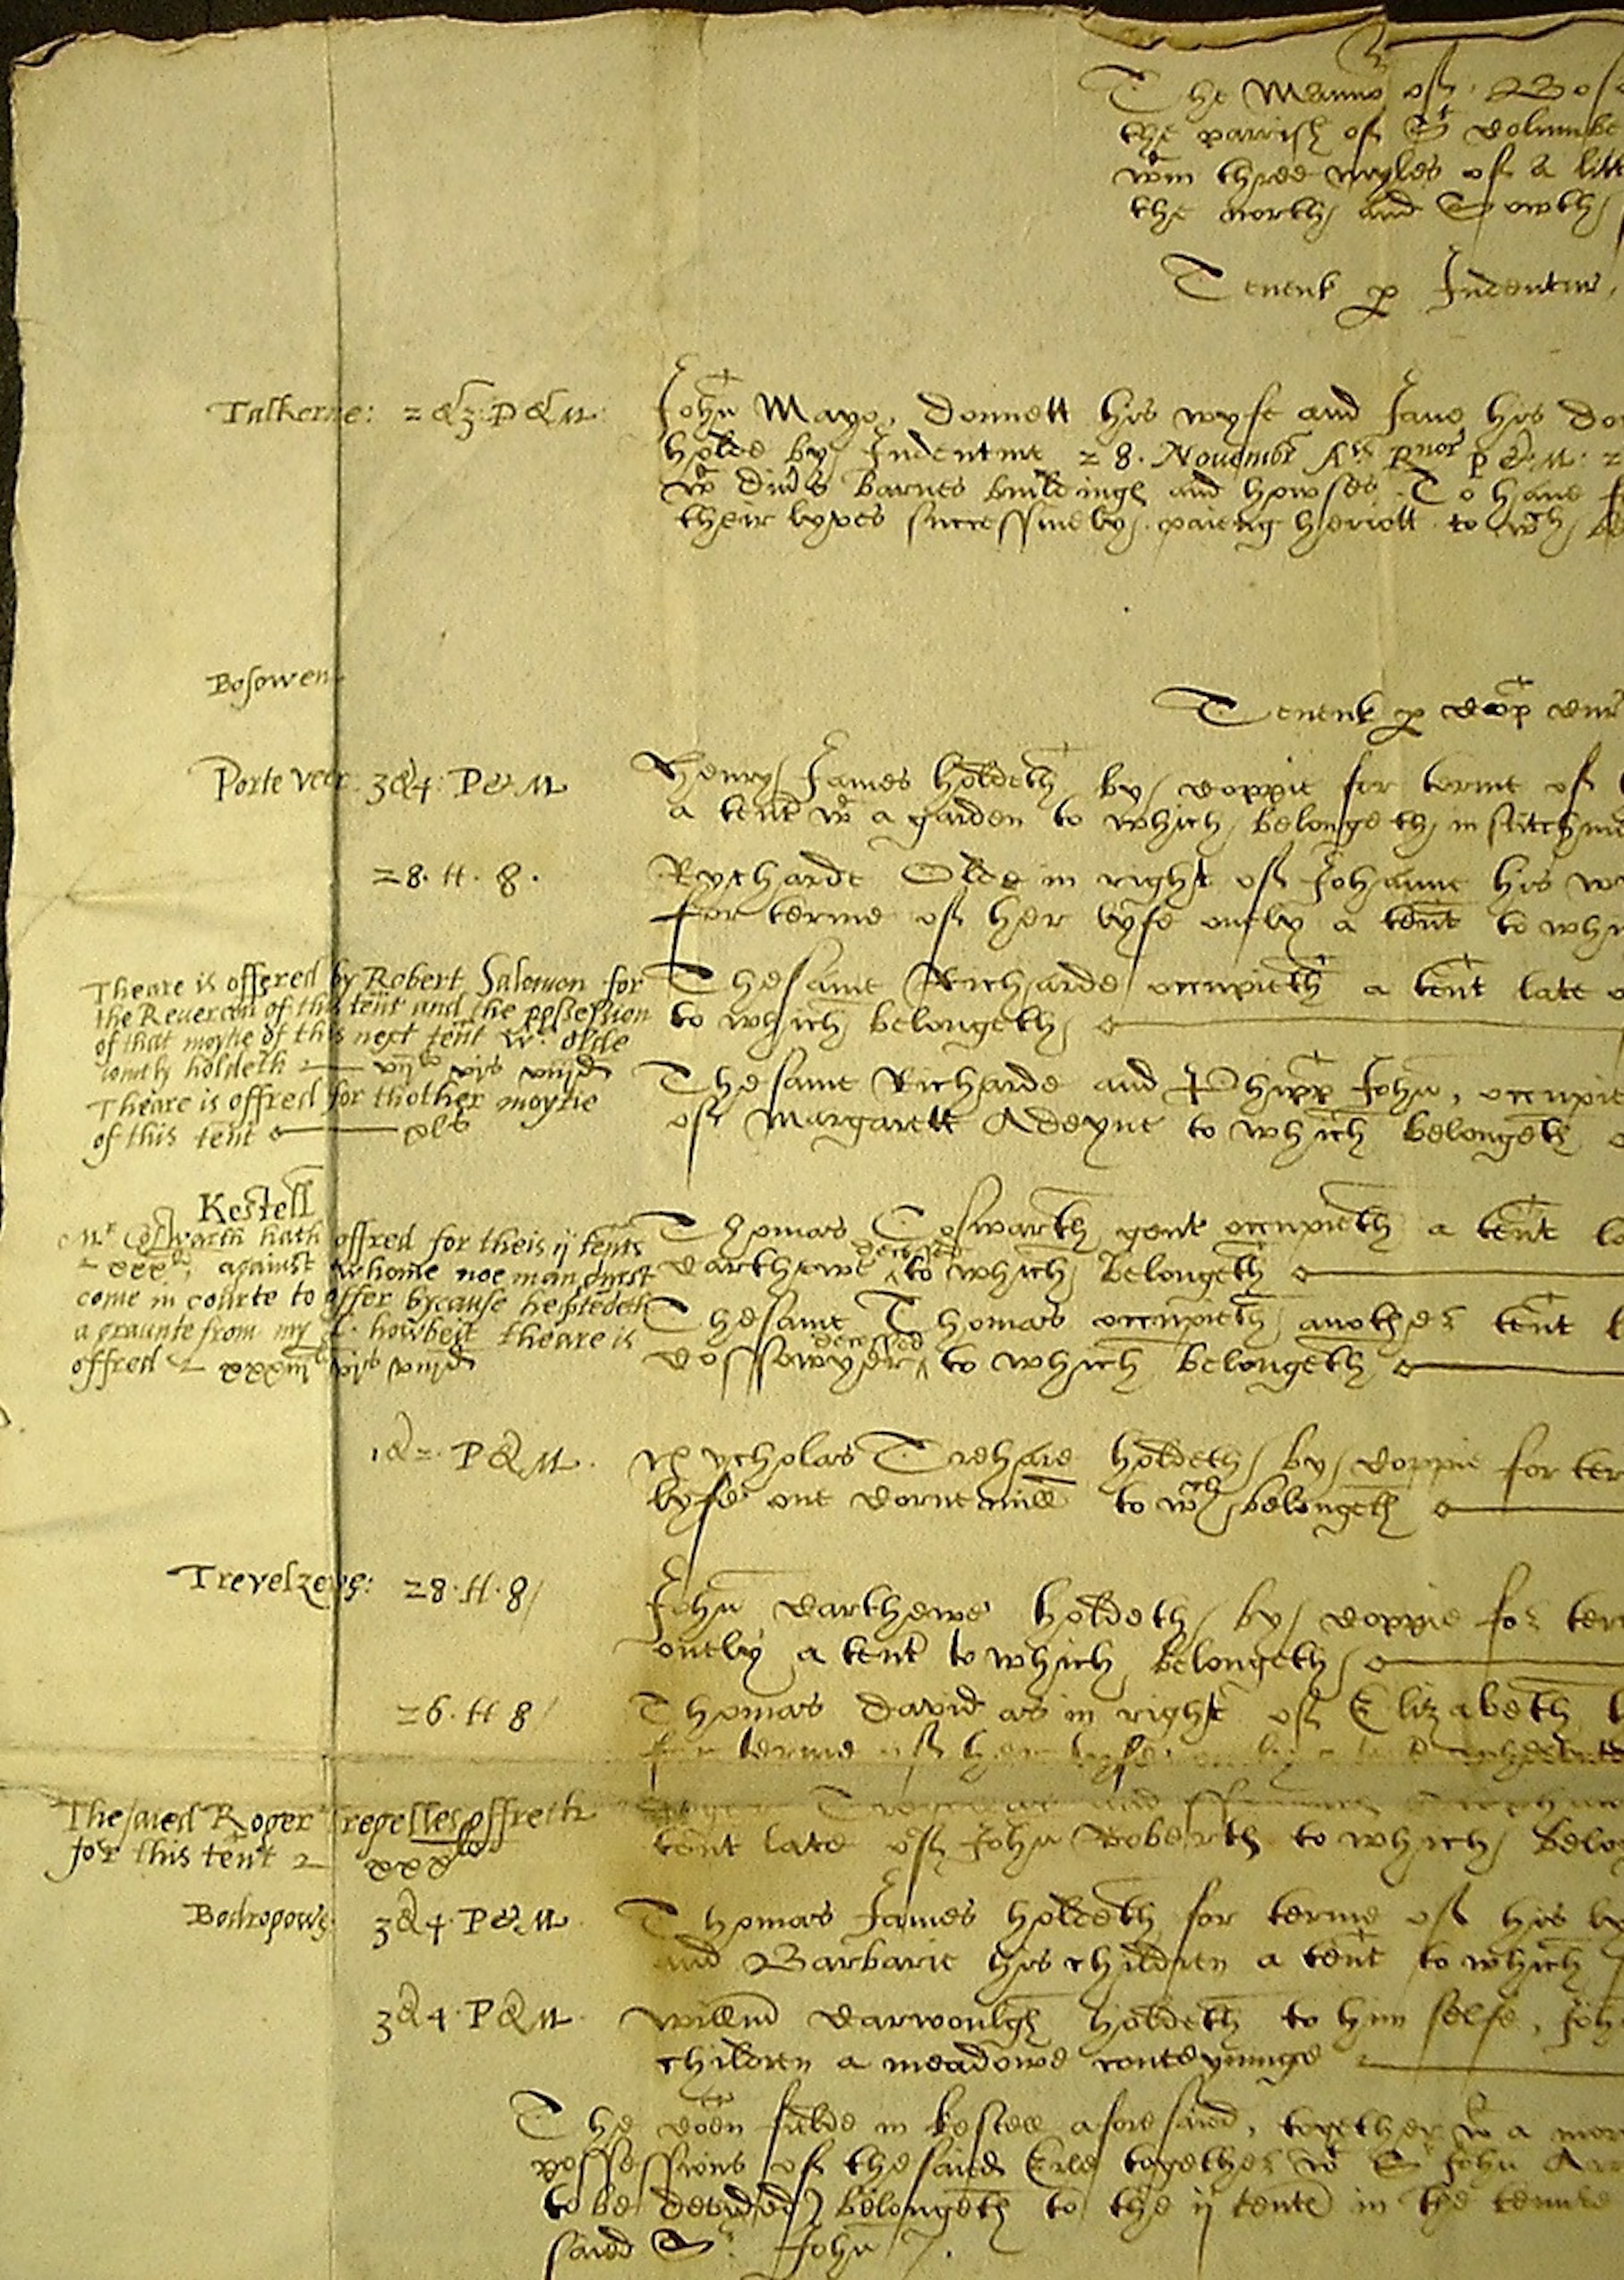 The Mannor of Bos
the parrish of St Columbe
wtin three myles of a litt
the north and Sowth
Tenent p Indentur,
Talkerne: 2 & 3: P & M:
John Mayo, Donnett his wyfe and Jane his do
holde by Indenture 28. Novembr Ais Rnor P & M: 2
wt divs Barnes buildings and howses. To have f
their lyves successively paieng heriott to wch be
Bosowen
Tenent p cop cur
Porte veer 3 & 4: P & M
Henry James holdeth by coppie for terme of
a tent wt a garden to which belongeth in stitch
28. H. 8.
Rycharde Olde in right of Johanne his wy
for terme of her lyfe onely a tent to whi
Theare is offered by Robert Salomon for
the Revercon of this tent and the possession
of that moytie of this next tent wc olde
iontly holdeth vijli vjs viijd
Theare is offred for thother moytie
of this tent xls
The same Richarde occupieth a tent late o
to which belongeth
The same Richarde and Phipp John, occupie
of Margarett Adeyne to which belongeth
Kestell
Mr Coswarth hath offred for theis ij tents
xxxli, against whome noe man durst
come in courte to offer bycause he ptedeth
a graunte from my L. howbeit theare is
offred xxxiijli vjs viijd
Thomas Coswarth gent occupieth a tent la
Carthewe deceased to which belongeth
The same Thomas occupieth another tent l
Cossawyder deceased to which belongeth
1 & 2. P & M.
Nycholas Trehare holdeth by coppie for ter
lyfe one Corne mill to wch belongeth
Trevelzeys: 28. H. 8
John Carthewe holdeth by coppie for ter
onely a tent to which belongeth
26. H 8
Thomas David as in right of Elizabeth
for terme of her lyfe
The saied Roger Tregelles offreth
for this tent xxxli
Roger
tent late of John Roberth to which belo
Bodropows 3 & 4. P & M
Thomas James holdeth for terme of his ly
and Barbarie his children a tent to which
3 & 4. P & M.
Willm Carwoulgh holdeth to him selfe, Joh
children a meadowe conteyninge
The Coen filde in kestell aforesaied, together wt a mor
possessions of the saied Erle together wt Sr John Arr
to be devyded) belongeth to the ij tents in the tenure
saied Sr John.